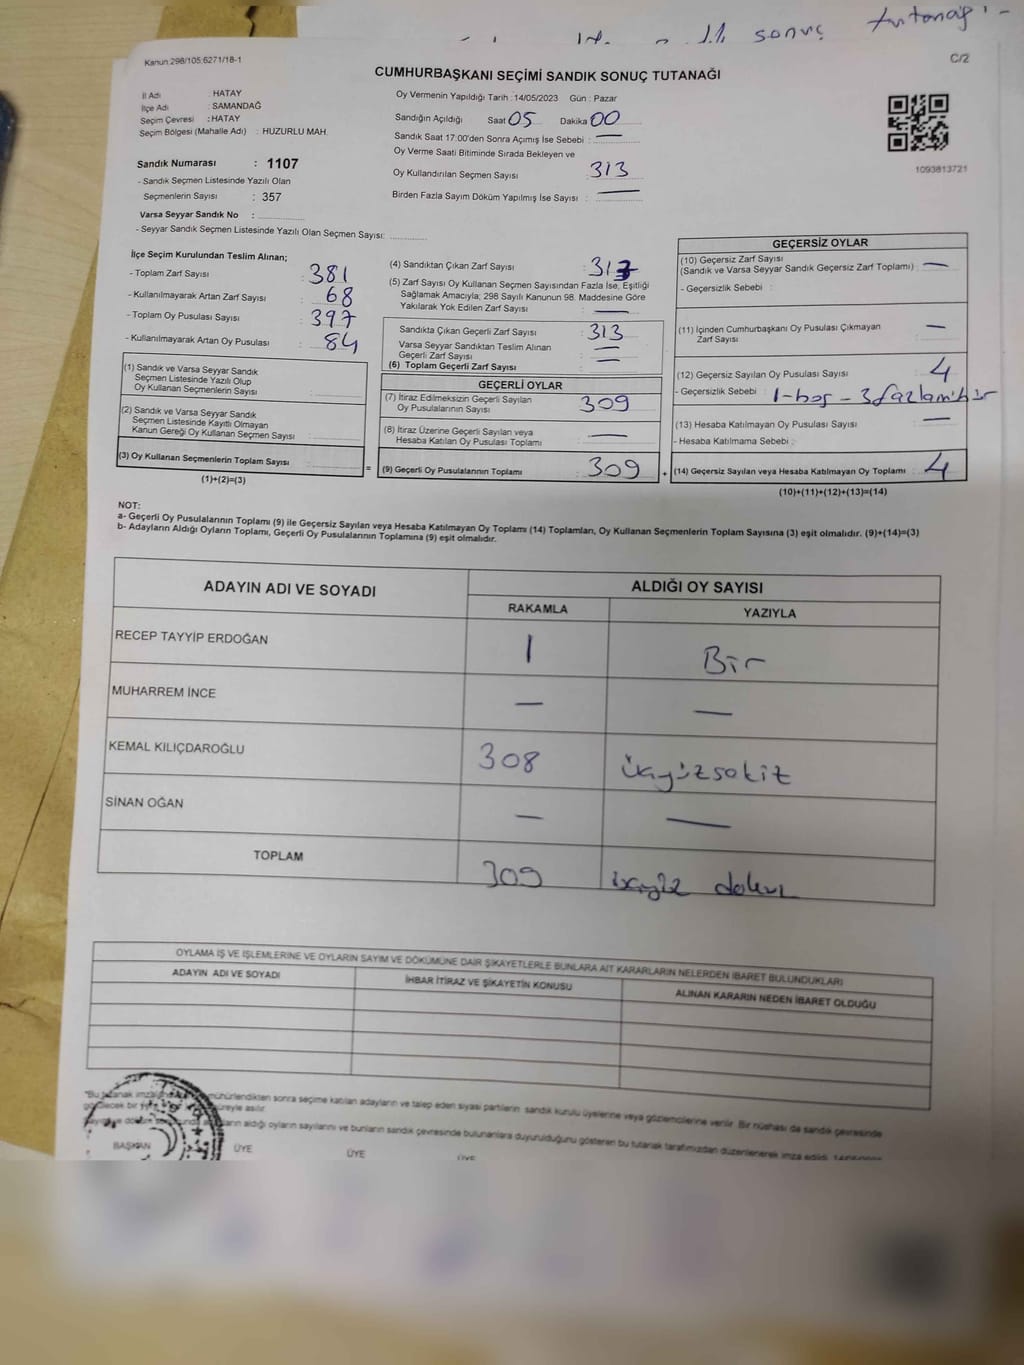 sonuç tutanağı -
Kanun:298/105:6271/18-1
C/2
CUMHURBAŞKANI SEÇİMİ SANDIK SONUÇ TUTANAĞI
İl Adı : HATAY
İlçe Adı : SAMANDAĞ
Seçim Çevresi : HATAY
Seçim Bölgesi (Mahalle Adı) : HUZURLU MAH.
Sandık Numarası : 1107
- Sandık Seçmen Listesinde Yazılı Olan
Seçmenlerin Sayısı : 357
Varsa Seyyar Sandık No :
- Seyyar Sandık Seçmen Listesinde Yazılı Olan Seçmen Sayısı:
Oy Vermenin Yapıldığı Tarih :14/05/2023 Gün : Pazar
Sandığın Açıldığı Saat 05 Dakika 00
Sandık Saat 17:00'den Sonra Açımış İse Sebebi : —
Oy Verme Saati Bitiminde Sırada Bekleyen ve
Oy Kullandırılan Seçmen Sayısı : 313
Birden Fazla Sayım Döküm Yapılmış İse Sayısı : —
1093813721
İlçe Seçim Kurulundan Teslim Alınan;
- Toplam Zarf Sayısı : 381
- Kullanılmayarak Artan Zarf Sayısı : 68
- Toplam Oy Pusulası Sayısı : 397
- Kullanılmayarak Artan Oy Pusulası : 84
(1) Sandık ve Varsa Seyyar Sandık
Seçmen Listesinde Yazılı Olup
Oy Kullanan Seçmenlerin Sayısı :
(2) Sandık ve Varsa Seyyar Sandık
Seçmen Listesinde Kayıtlı Olmayan
Kanun Gereği Oy Kullanan Seçmen Sayısı :
(3) Oy Kullanan Seçmenlerin Toplam Sayısı :
(1)+(2)=(3)
=
(4) Sandıktan Çıkan Zarf Sayısı : 313
(5) Zarf Sayısı Oy Kullanan Seçmen Sayısından Fazla İse, Eşitliği
Sağlamak Amacıyla; 298 Sayılı Kanunun 98. Maddesine Göre
Yakılarak Yok Edilen Zarf Sayısı : —
Sandıkta Çıkan Geçerli Zarf Sayısı : 313
Varsa Seyyar Sandıktan Teslim Alınan
Geçerli Zarf Sayısı : —
(6) Toplam Geçerli Zarf Sayısı : —
GEÇERLİ OYLAR
(7) İtiraz Edilmeksizin Geçerli Sayılan
Oy Pusulalarının Sayısı : 309
(8) İtiraz Üzerine Geçerli Sayılan veya
Hesaba Katılan Oy Pusulası Toplamı : —
(9) Geçerli Oy Pusulalarının Toplamı : 309
+
GEÇERSİZ OYLAR
(10) Geçersiz Zarf Sayısı
(Sandık ve Varsa Seyyar Sandık Geçersiz Zarf Toplamı) : —
- Geçersizlik Sebebi :
(11) İçinden Cumhurbaşkanı Oy Pusulası Çıkmayan
Zarf Sayısı : —
(12) Geçersiz Sayılan Oy Pusulası Sayısı : 4
- Geçersizlik Sebebi : 1-boş - 3 fazla mühür
(13) Hesaba Katılmayan Oy Pusulası Sayısı : —
- Hesaba Katılmama Sebebi :
(14) Geçersiz Sayılan veya Hesaba Katılmayan Oy Toplamı : 4
(10)+(11)+(12)+(13)=(14)
NOT:
a- Geçerli Oy Pusulalarının Toplamı (9) ile Geçersiz Sayılan veya Hesaba Katılmayan Oy Toplamı (14) Toplamları, Oy Kullanan Seçmenlerin Toplam Sayısına (3) eşit olmalıdır. (9)+(14)=(3)
b- Adayların Aldığı Oyların Toplamı, Geçerli Oy Pusulalarının Toplamına (9) eşit olmalıdır.
ADAYIN ADI VE SOYADI
ALDIĞI OY SAYISI
RAKAMLA YAZIYLA
RECEP TAYYİP ERDOĞAN 1 Bir
MUHARREM İNCE — —
KEMAL KILIÇDAROĞLU 308 üçyüzsekiz
SİNAN OĞAN — —
TOPLAM 309 üçyüz dokuz
OYLAMA İŞ VE İŞLEMLERİNE VE OYLARIN SAYIM VE DÖKÜMÜNE DAİR ŞİKAYETLERLE BUNLARA AİT KARARLARIN NELERDEN İBARET BULUNDUKLARI
ADAYIN ADI VE SOYADI İHBAR İTİRAZ VE ŞİKAYETİN KONUSU ALINAN KARARIN NEDEN İBARET OLDUĞU
"Bu tutanak mühürlendikten sonra seçime katılan adayların ve talep eden siyasi partilerin sandık kurulu üyelerine veya gözlemcilerine verilir. Bir nüshası da sandık çevresinde
görülecek bir süreyle asılır.
aldığı oyların sayılarını ve bunların sandık çevresinde bulunanlara duyurulduğunu gösteren bu tutanak tarafımızdan düzenlenerek imza edildi.
BAŞKAN ÜYE ÜYE ÜYE